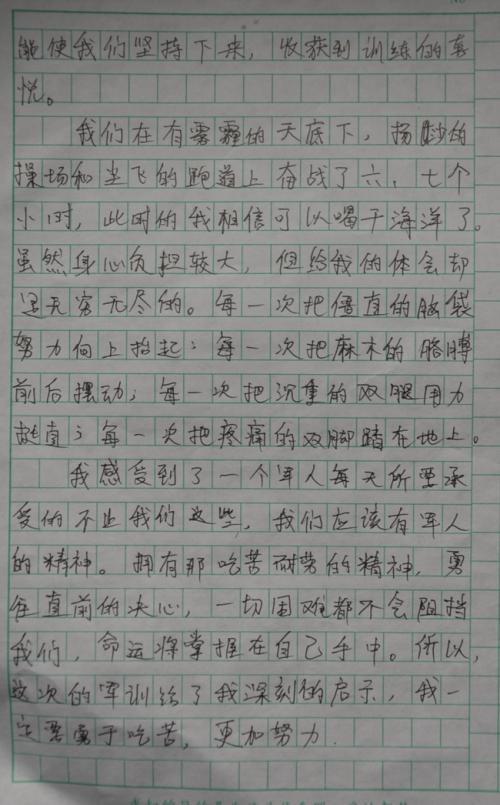 能使我们坚持下来，收获到训练的喜
悦。
我们在有雾霾的天底下，扬沙的
操场和尘飞的跑道上奋战了六、七个
小时，此时的我相信可以喝干海洋了。
虽然身心负担较大，但给我的体会却
是无穷无尽的。每一次把僵直的脑袋
努力向上抬起；每一次把麻木的胳膊
前后摆动；每一次把沉重的双腿用力
踢直；每一次把疼痛的双脚踏在地上。
我感受到了一个军人每天所要承
受的不止我们这些，我们应该有军人
的精神。拥有那吃苦耐劳的精神，勇
往直前的决心，一切困难都不会阻挡
我们，命运将掌握在自己手中。所以，
这次的军训给了我深刻的启示，我一
定要勇于吃苦，更加努力.